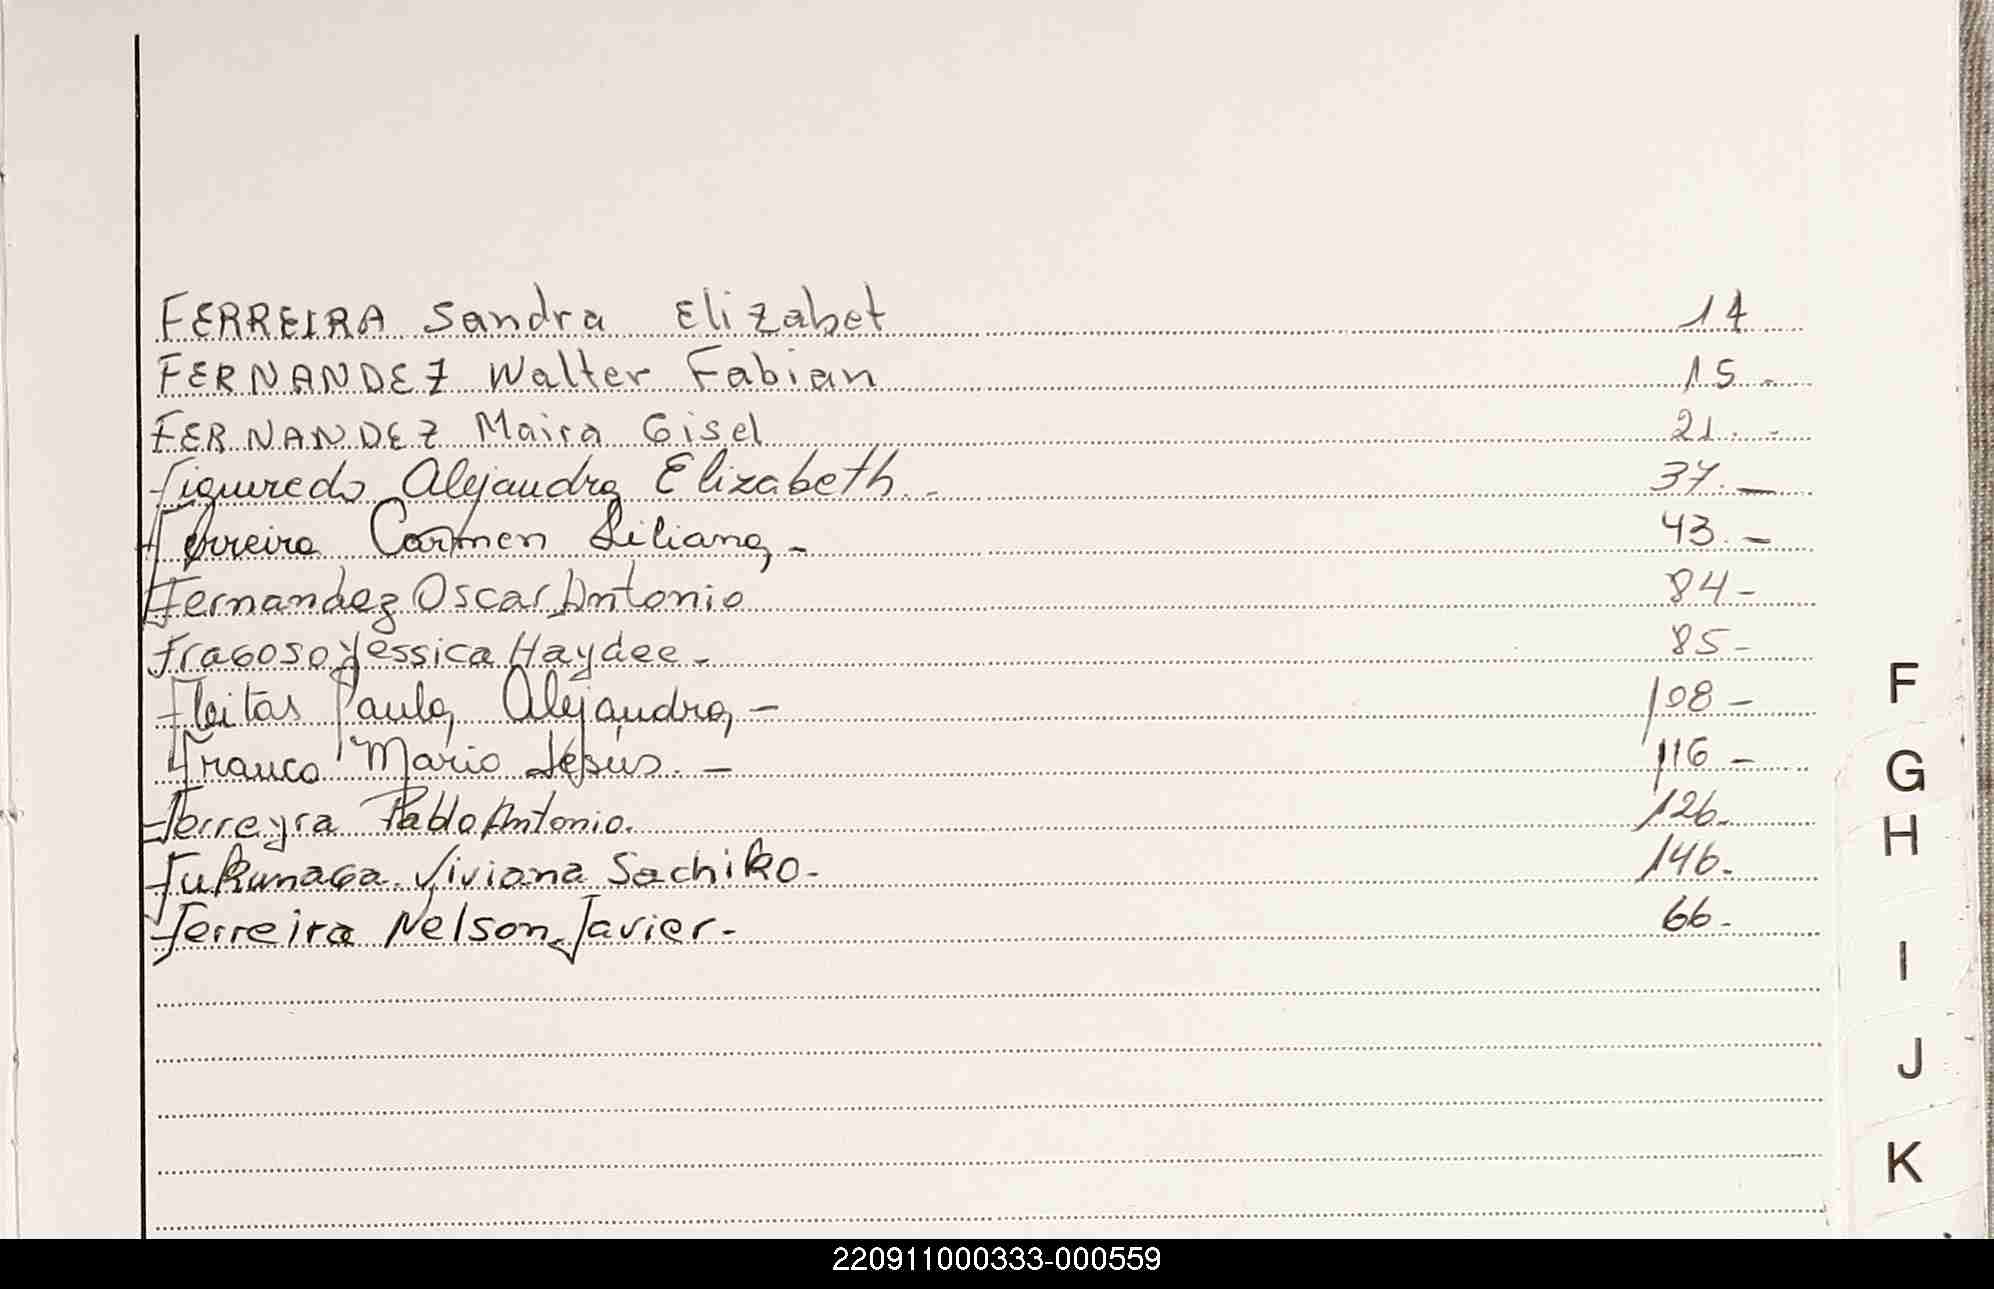 FERREIRA Sandra Elizabet 14
FERNANDEZ Walter Fabian 15 -
FERNANDEZ Maira Gisel 21. -
Figueredo Alejandra Elizabeth. - 37. -
Ferreira Carmen Liliana, - 43. -
Fernandez Oscar Antonio 84 -
Fragoso Yessica Haydee - 85 -
Fleitas Paula Alejandra, - 108 -
Franco Mario Jesús. - 116 -
Ferreyra Pablo Antonio. 126.
Fukunaga Viviana Sachiko - 146.
Ferreira Nelson Javier - 66.
F
G
H
I
J
K
220911000333-000559